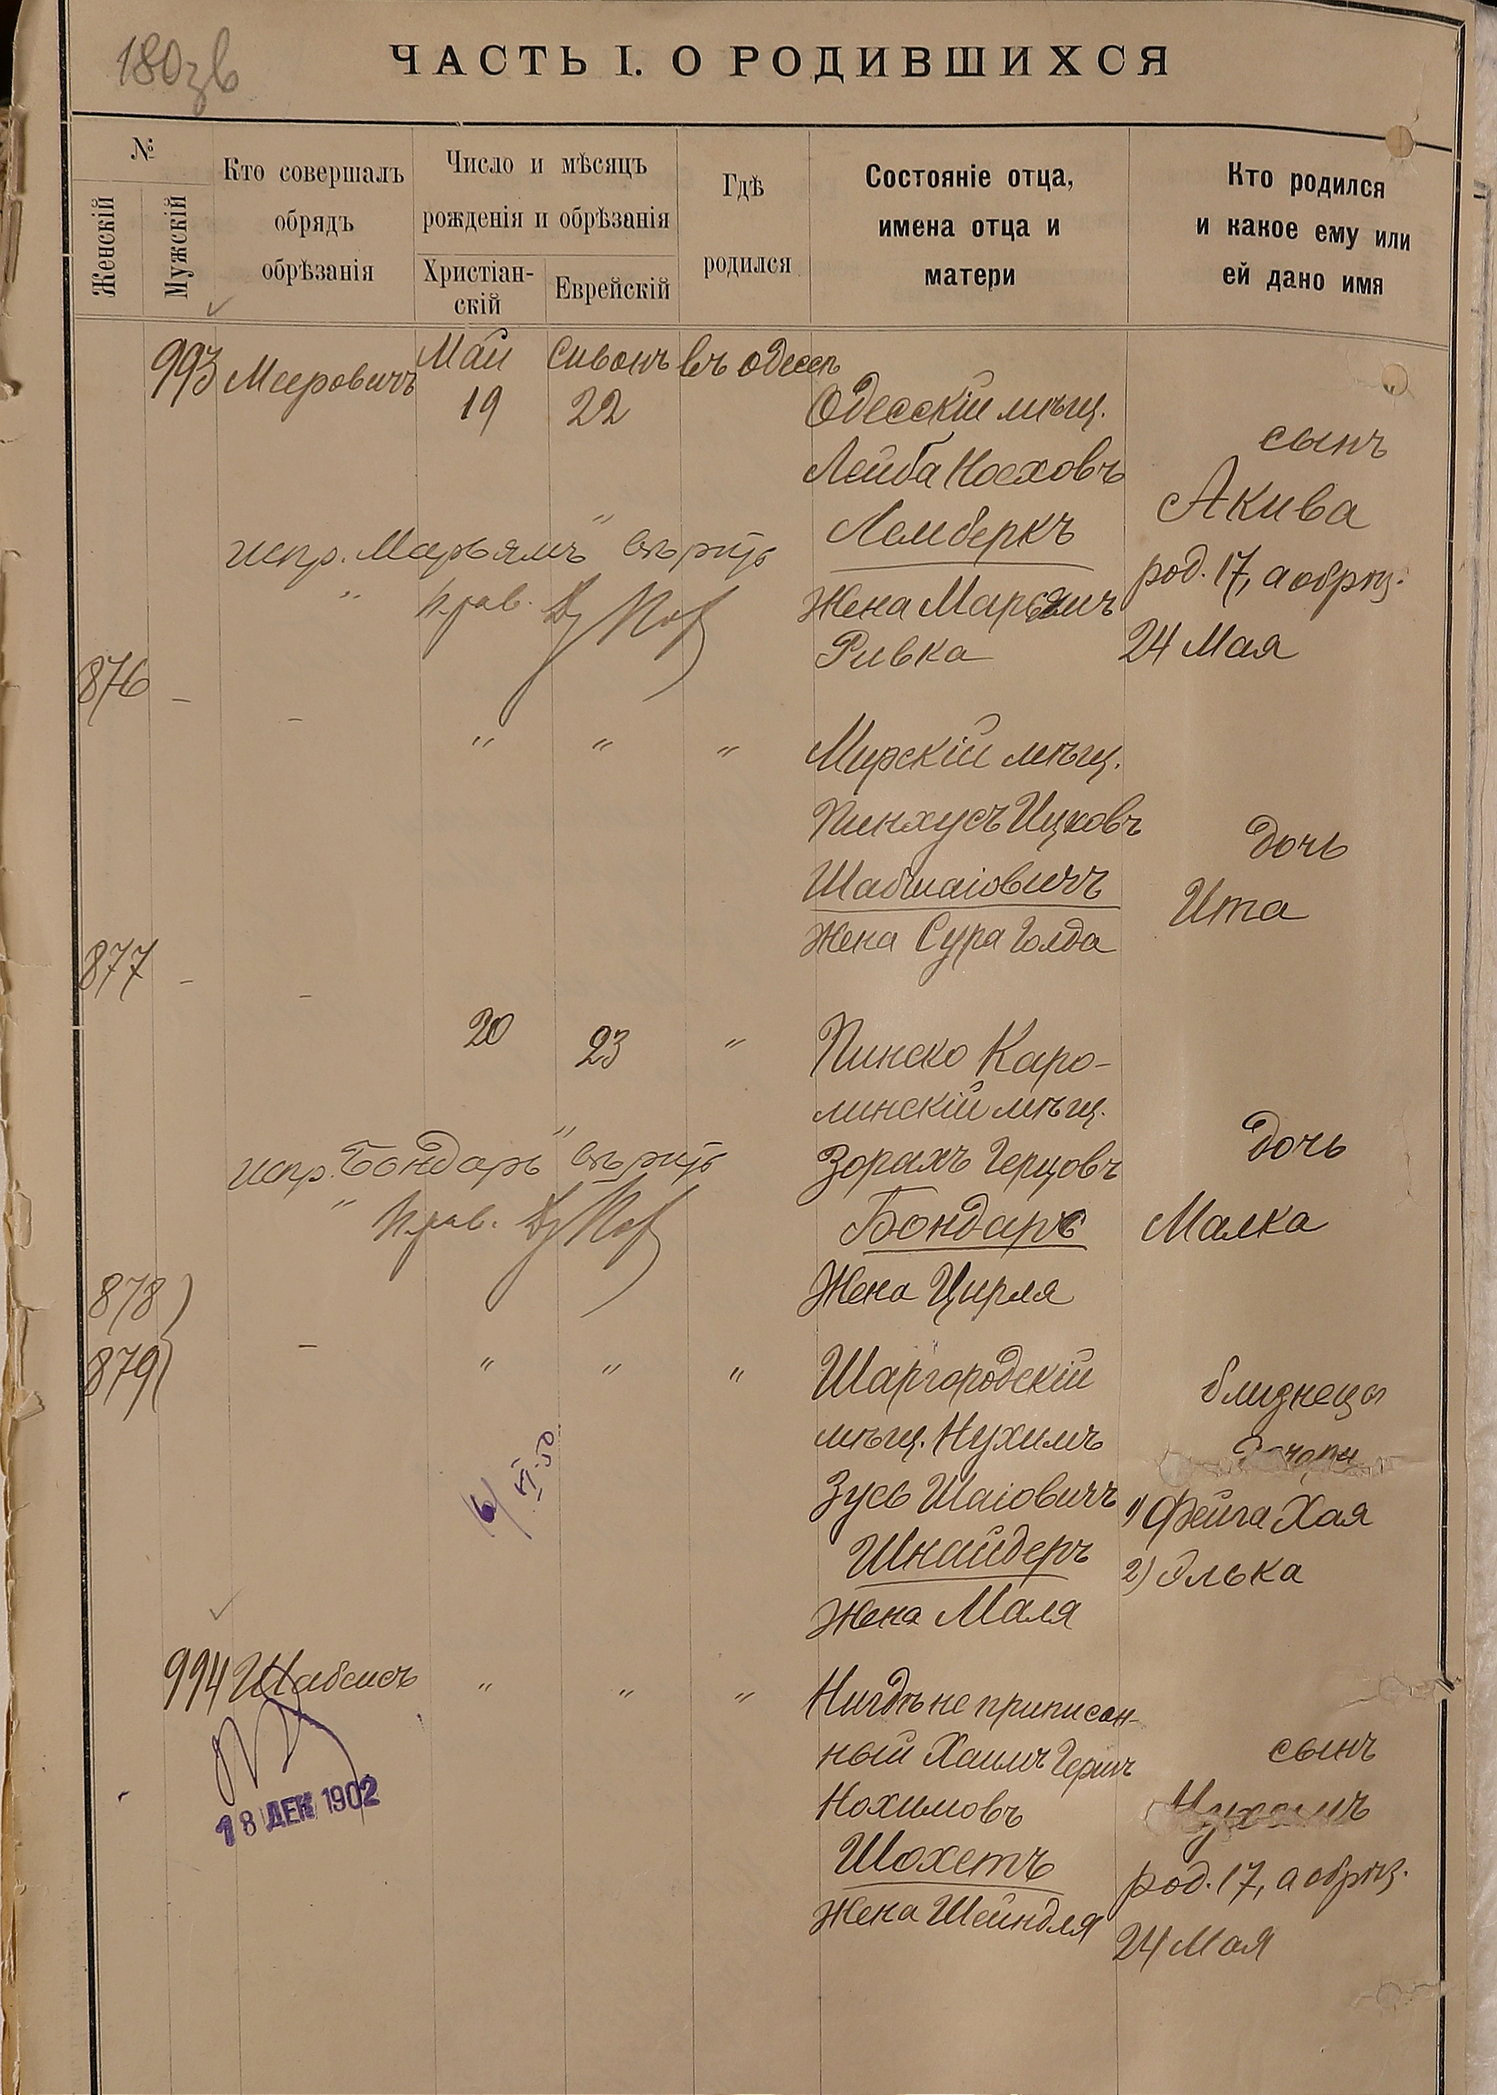 180зв
ЧАСТЬ I. О РОДИВШИХСЯ
№
Женскій
Мужскій
Кто совершалъ
обрядъ
обрѣзанія
Число и мѣсяцъ
рожденія и обрѣзанія
Христіан-
скій
Еврейскій
Гдѣ
родился
Состояніе отца,
имена отца и
матери
Кто родился
и какое ему или
ей дано имя
993 Мееровичъ Май Сивонъ въ Одессѣ
19 22
Одесскій мѣщ.
Лейба Носховъ
Лемберкъ
Жена Марьямъ
Ривка
сынъ
Акива
род. 17, а обрѣз.
24 Мая
испр. „Марьямъ" вѣрить
876 - - " " "
Мирскій мѣщ.
Пинхусъ Ицковъ
Шабшаіовичъ
Жена Сура Голда
дочь
Ита
877 - - 20 23 "
Пинско Каро-
линскій мѣщ.
Зорахъ Герцовъ
Бондарь
Жена Цирля
дочь
Малка
испр. „Бондарь" вѣрить
878)
879) - " " "
Шаргородскій
мѣщ. Нухимъ
Зусь Шаіовичъ
Шнайдеръ
Жена Маля
близнецы
дочери
1) Фейга Хая
2) Элька
16/VI.50
994 Шабсисъ " " "
Нигдѣ не приписан-
ный Хаимъ Гершъ
Нохимовъ
Шохетъ
Жена Шейндля
сынъ
род. 17, а обрѣз.
24 Мая
18 ДЕК 1902